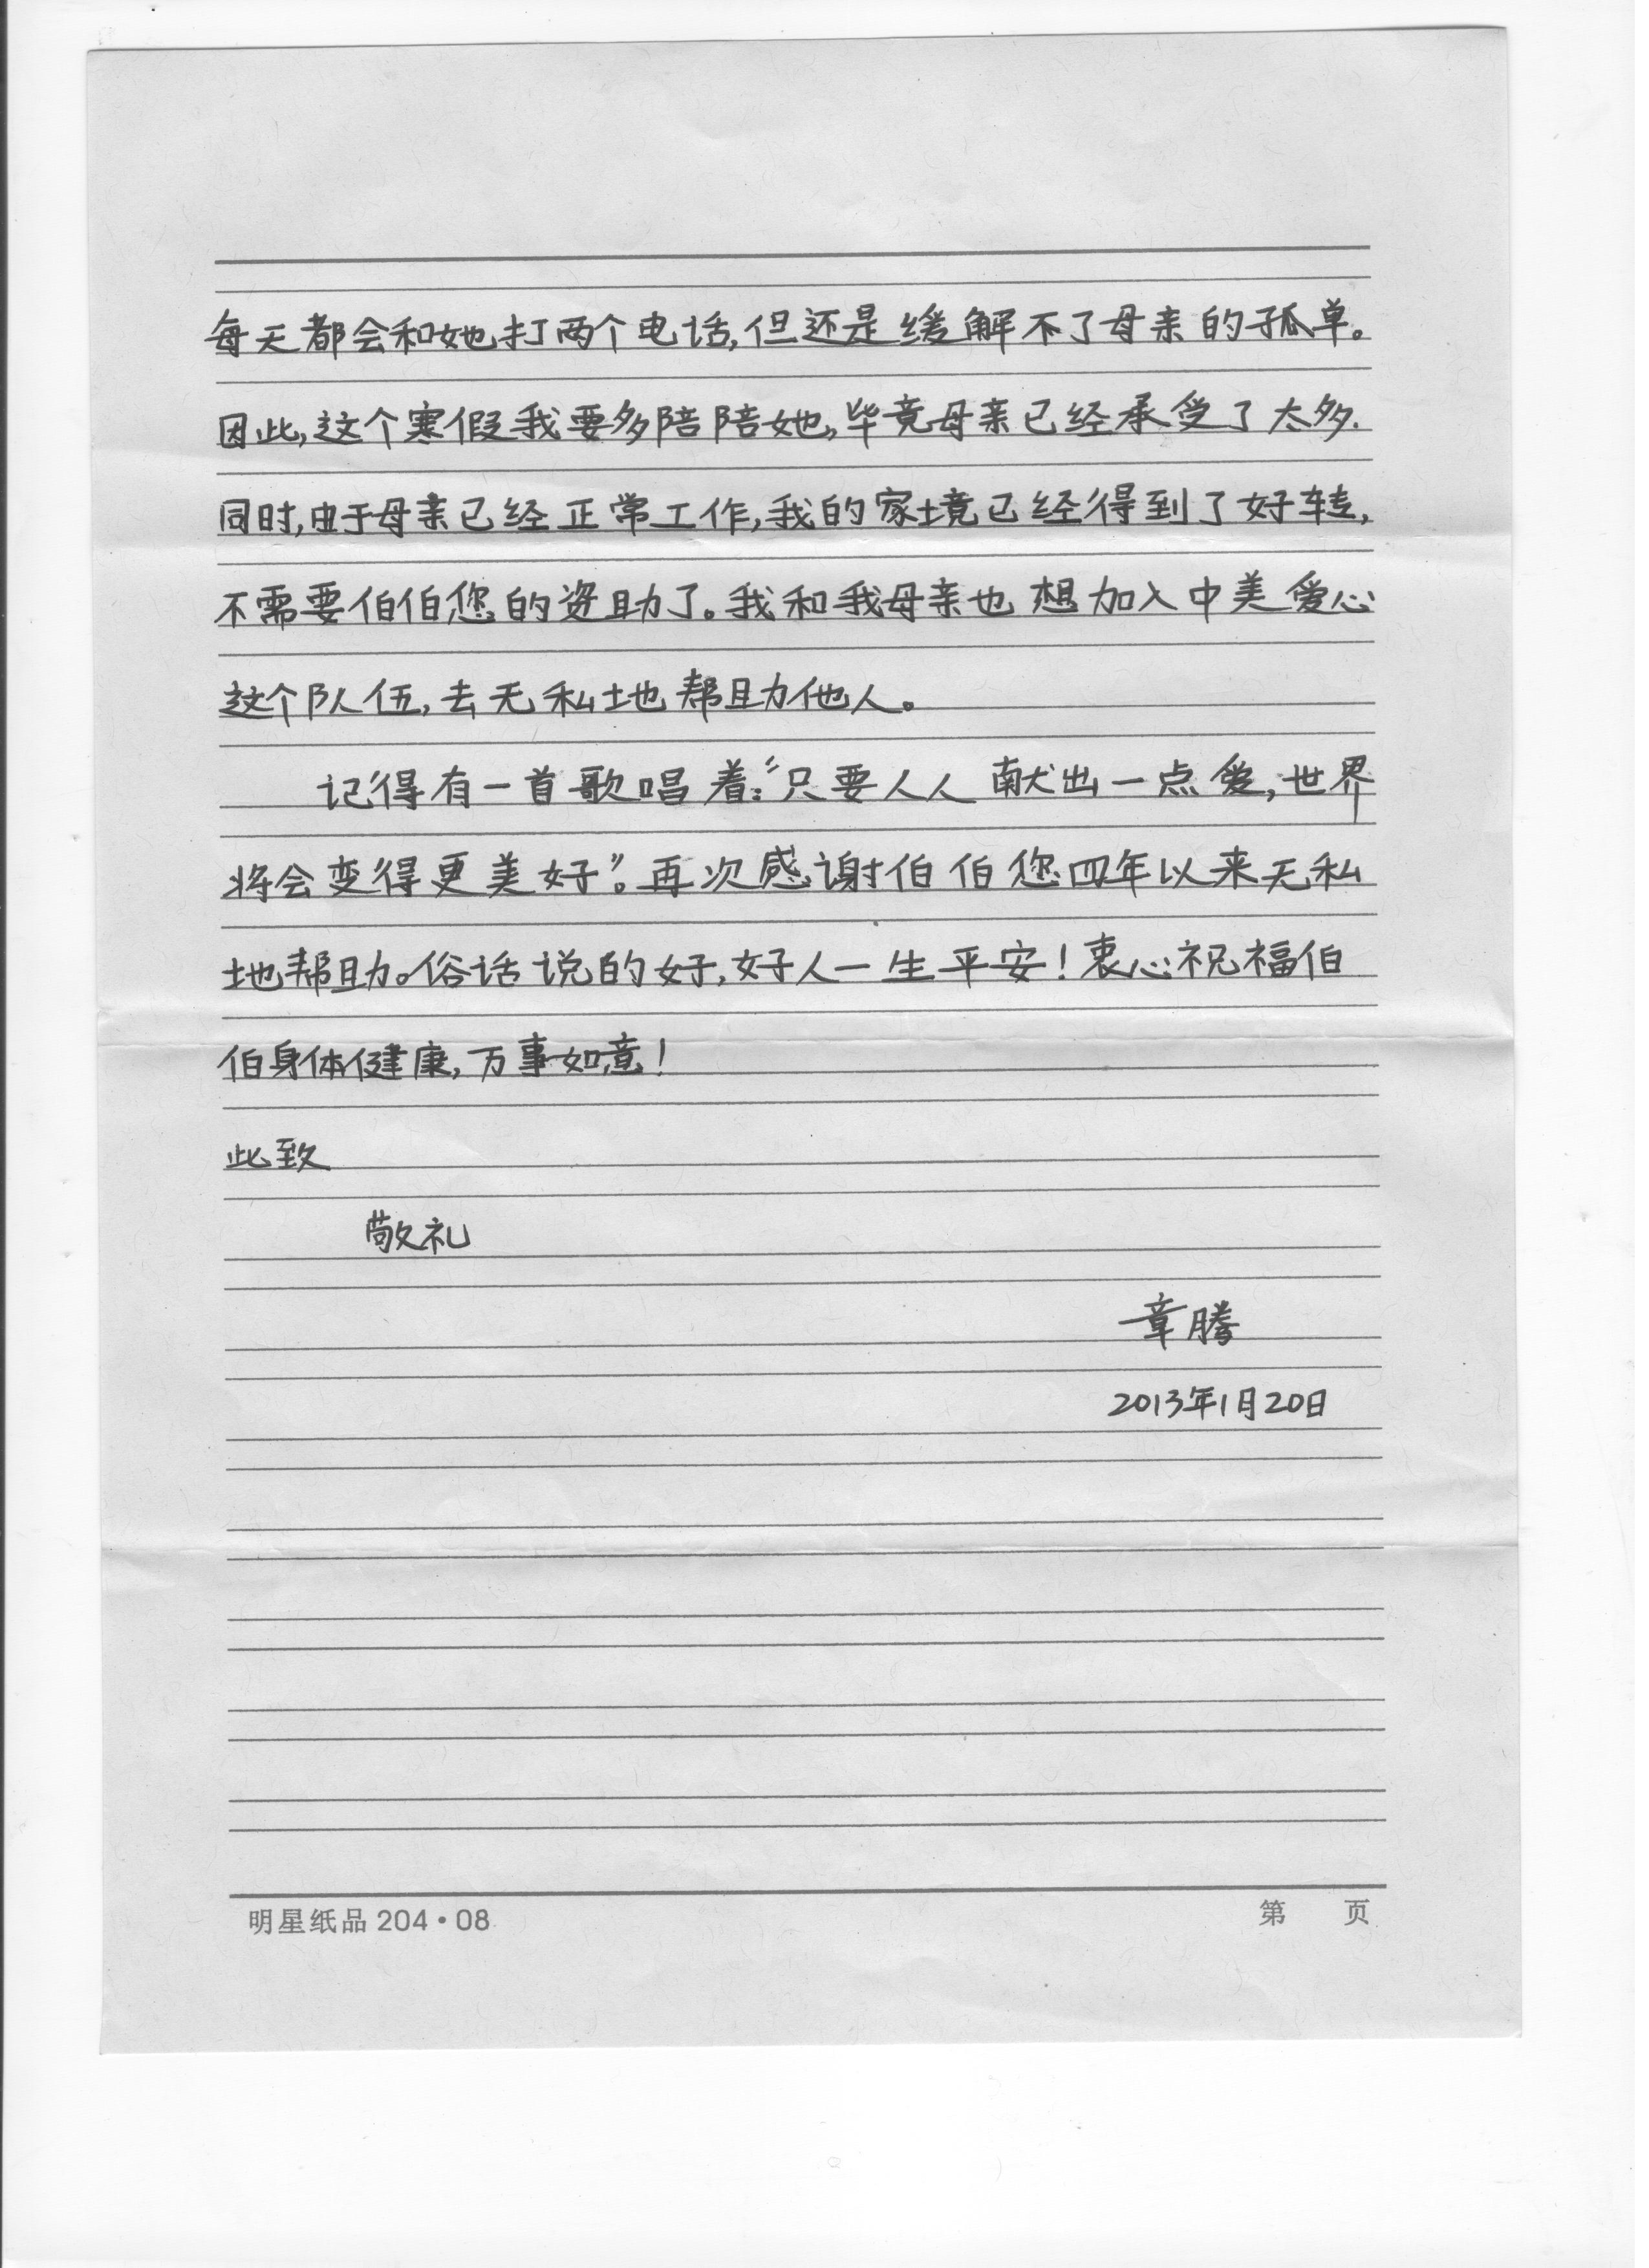 每天都会和她打两个电话,但还是缓解不了母亲的孤单。
因此,这个寒假我要多陪陪她,毕竟母亲已经承受了太多.
同时,由于母亲已经正常工作,我的家境已经得到了好转,
不需要伯伯您的资助了。我和我母亲也想加入中美爱心
这个队伍,去无私地帮助他人。
记得有一首歌唱着:“只要人人献出一点爱,世界
将会变得更美好”。再次感谢伯伯您四年以来无私
地帮助。俗话说的好,好人一生平安!衷心祝福伯
伯身体健康,万事如意!
此致
敬礼
章腾
2013年1月20日
明星纸品 204·08 第 页